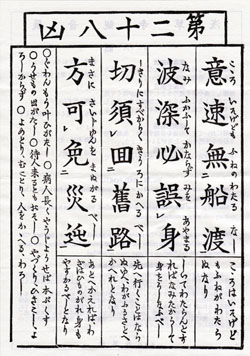 第二十八凶
意速無船渡
こころ いそげども ふねのわたる
こゝろはいそげど
もふねがわたら
ぬなり
波深必誤身
なみ ふかふして かならず みを あやまる
してわたらんとす
ればなみたかうして
切須囬舊路
せつにすべからく きうろにかへる べし
先へ行くことはなら
ぬゆへわがふるさとへ
かへれとなり
方可免災迍
まさに さいちゆんを まぬがる べし
あとへかえればわ
ざはひものがれ身も
やすかるべしとなり
わんもう叶ひがたし○病人長くやうじやうせば本ぷくす
○うせもの出がたし○待人来るともおそし○やづくり、ひきこし、よ
ろしからず○よめとり、むことり、人をかゝへる、わろし